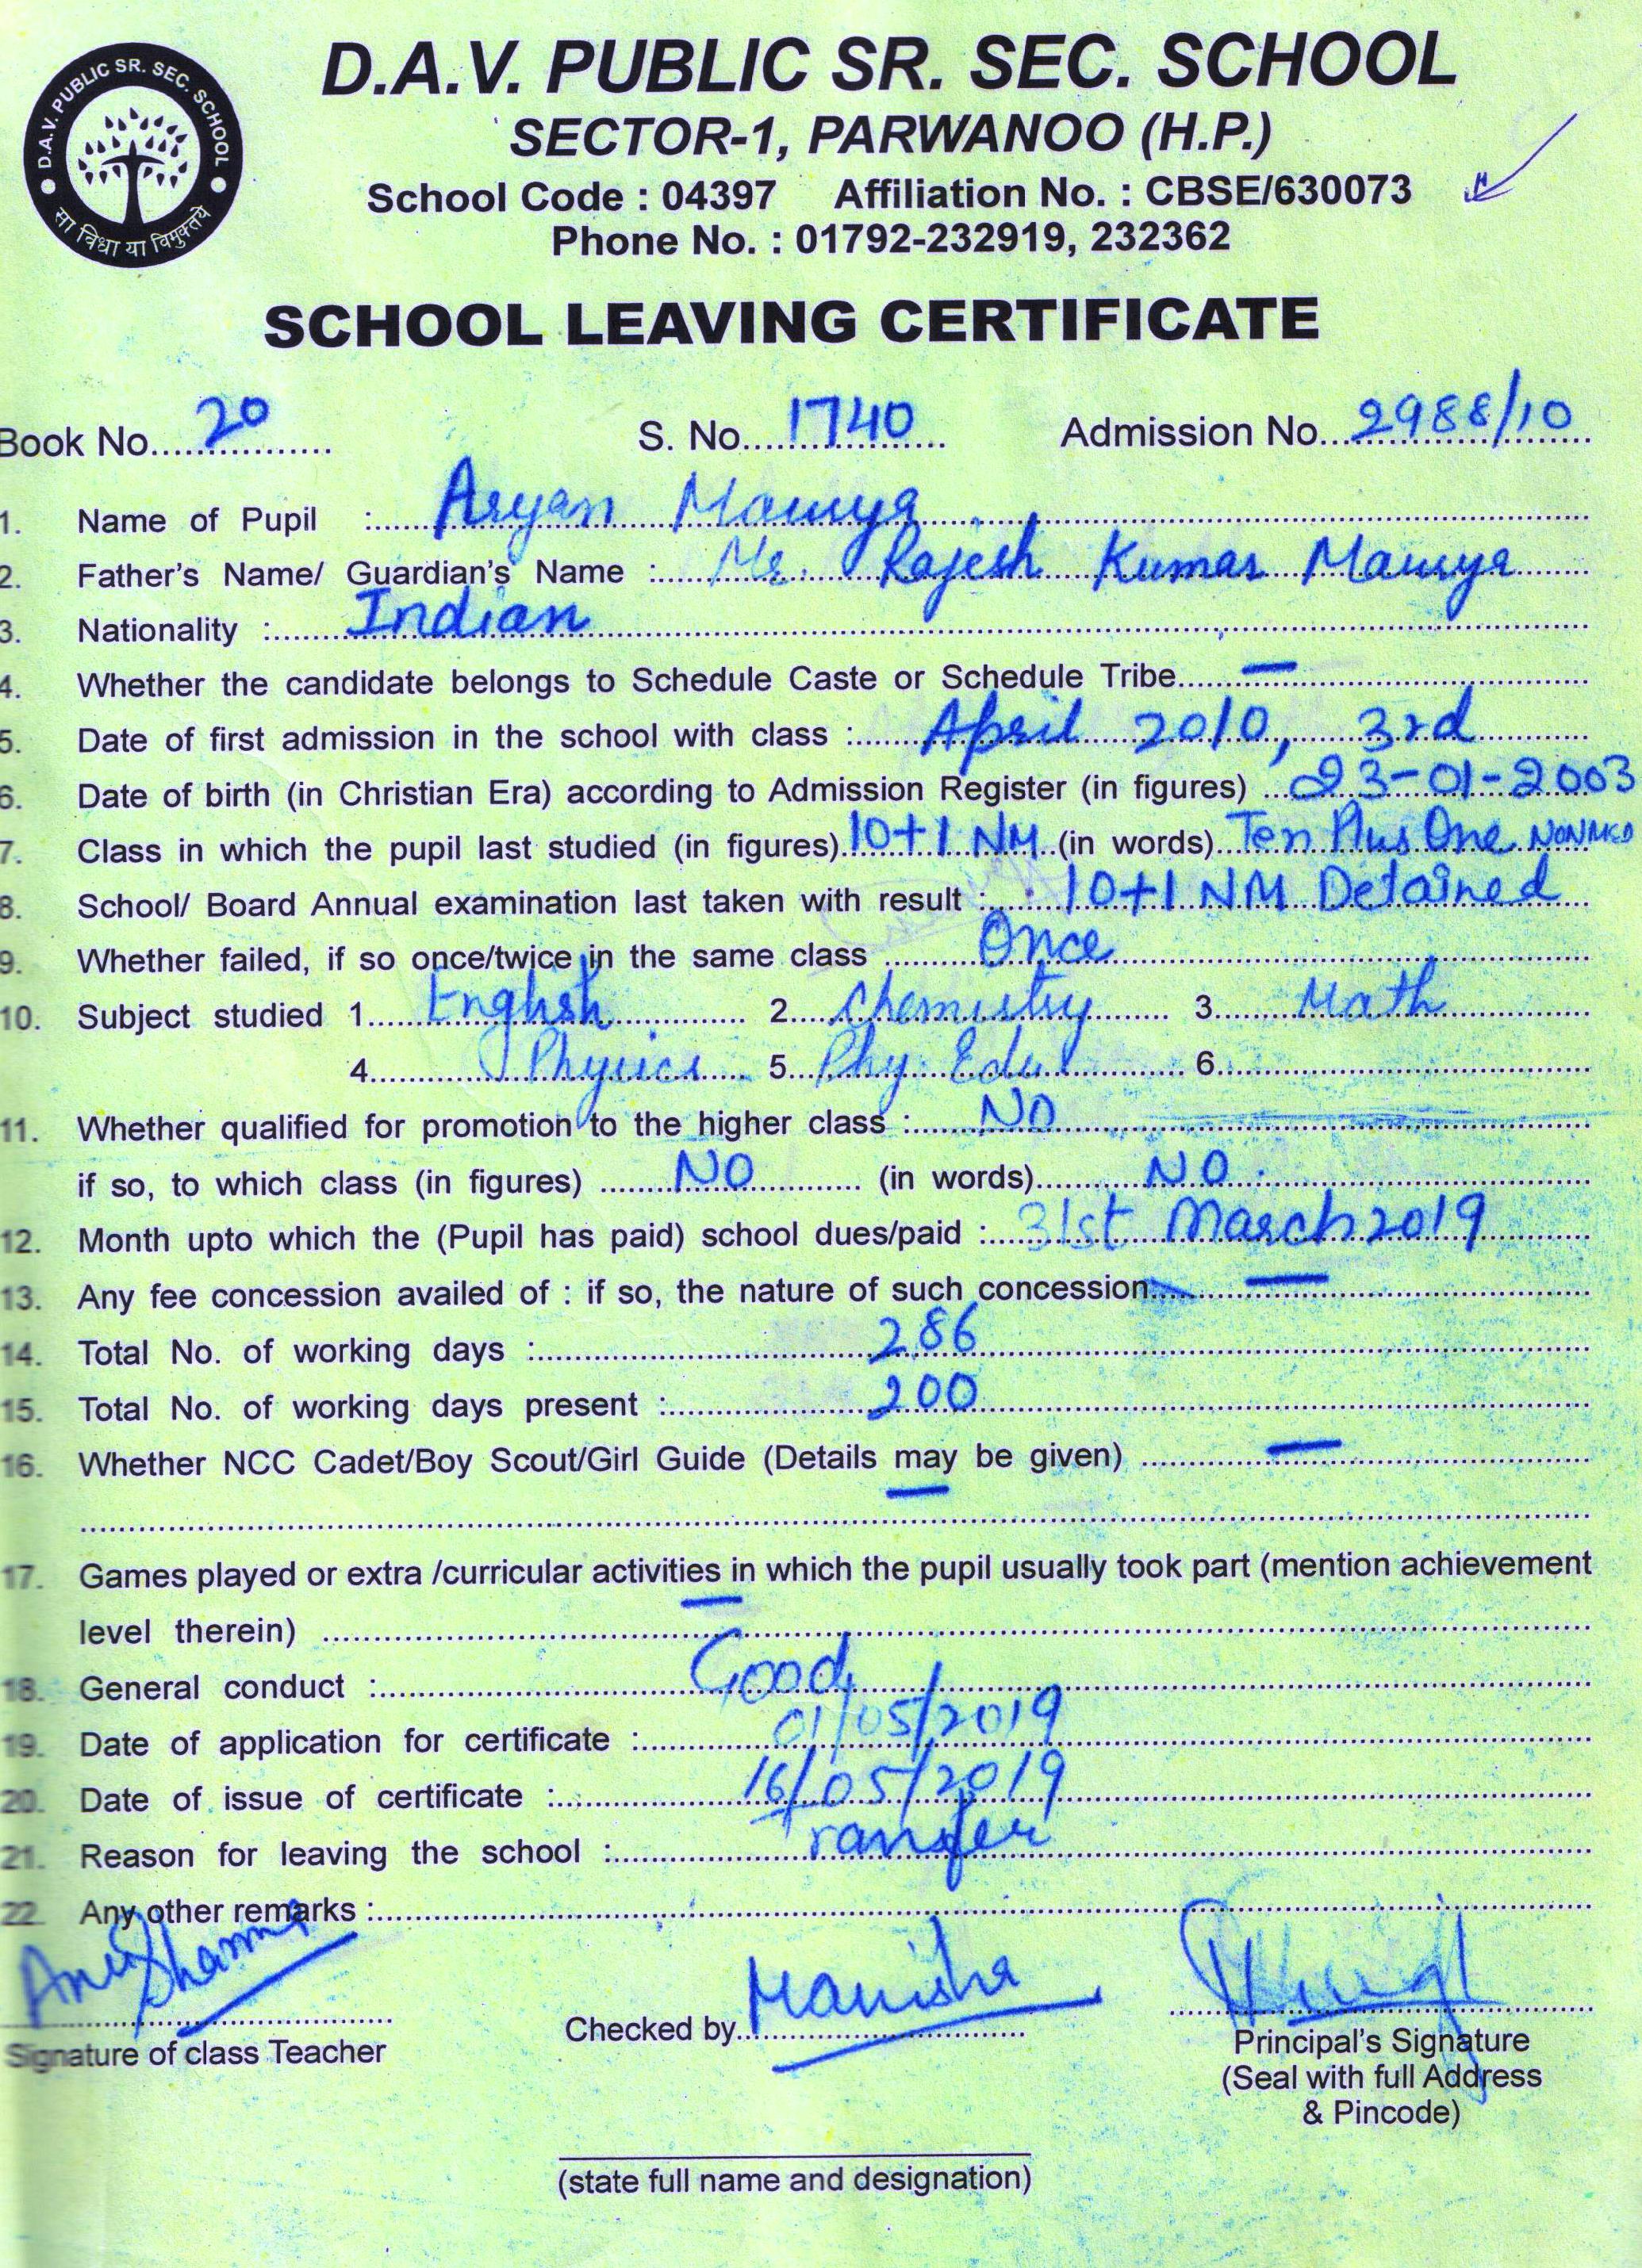 D.A.V. PUBLIC SR. SEC. SCHOOL
D.A.V. PUBLIC SR. SEC. SCHOOL
सा विधा या विमुक्तये
SECTOR-1, PARWANOO (H.P.)
School Code : 04397 Affiliation No. : CBSE/630073
Phone No. : 01792-232919, 232362
SCHOOL LEAVING CERTIFICATE
Book No. 20 S. No. 1740 Admission No. 2988/10
1. Name of Pupil : Aryan Maurya
2. Father's Name/ Guardian's Name : Mr. Rajesh Kumar Maurya
3. Nationality : Indian
4. Whether the candidate belongs to Schedule Caste or Schedule Tribe —
5. Date of first admission in the school with class : April 2010, 3rd
6. Date of birth (in Christian Era) according to Admission Register (in figures) 23-01-2003
7. Class in which the pupil last studied (in figures) 10+1 NM (in words) Ten Plus One
8. School/ Board Annual examination last taken with result : 10+1 NM Detained
9. Whether failed, if so once/twice in the same class Once
10. Subject studied 1. English 2. Chemistry 3. Math
4. Physics 5. Phy. Edu 6.
11. Whether qualified for promotion to the higher class : NO
if so, to which class (in figures) NO (in words) NO
12. Month upto which the (Pupil has paid) school dues/paid : 31st March 2019
13. Any fee concession availed of : if so, the nature of such concession —
14. Total No. of working days : 286
15. Total No. of working days present : 200
16. Whether NCC Cadet/Boy Scout/Girl Guide (Details may be given) —
—
17. Games played or extra /curricular activities in which the pupil usually took part (mention achievement
level therein) —
18. General conduct : Good
19. Date of application for certificate : 01/05/2019
20. Date of issue of certificate : 16/05/2019
21. Reason for leaving the school : Tranfer
22. Any other remarks :
Anu Sharma
Signature of class Teacher
Checked by Manisha
Principal's Signature
(Seal with full Address
& Pincode)
(state full name and designation)